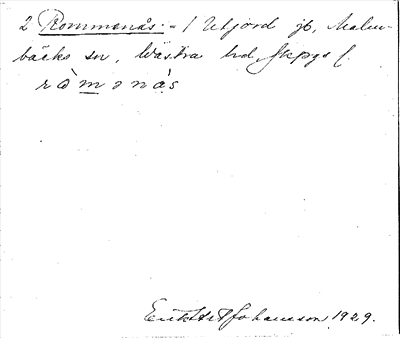 2 Rommenås. = 1 Utjord jb, Malm-
bäcks sn, Västra hd, Jkpgs l.
ròmɘnás
Johansson 1929.